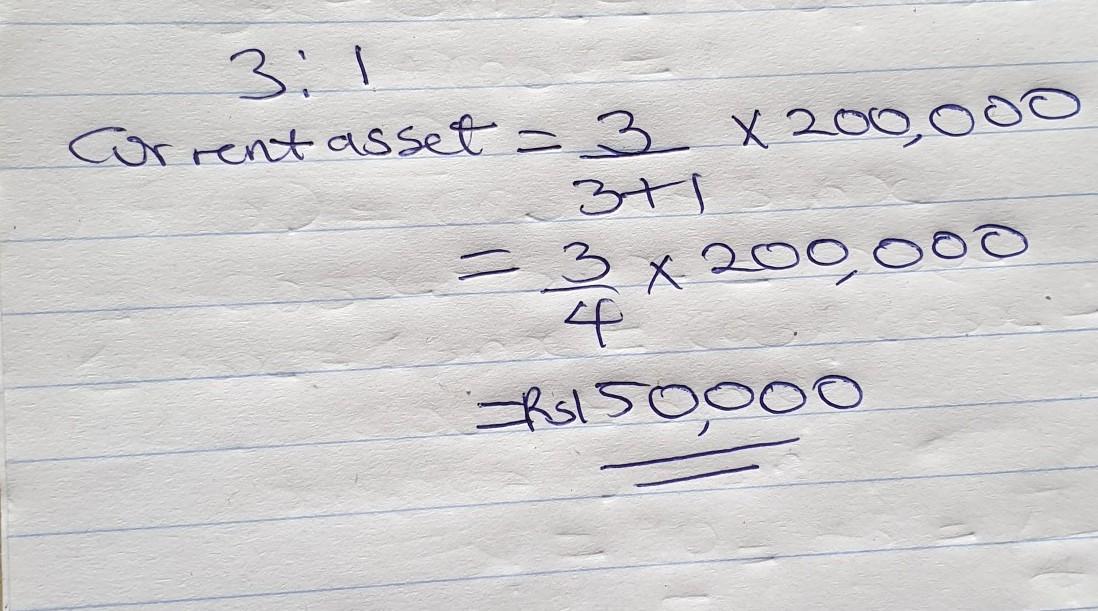 3:1
Current asset = 3/3+1 × 200,000
= 3/4 × 200,000
=Rs150,000